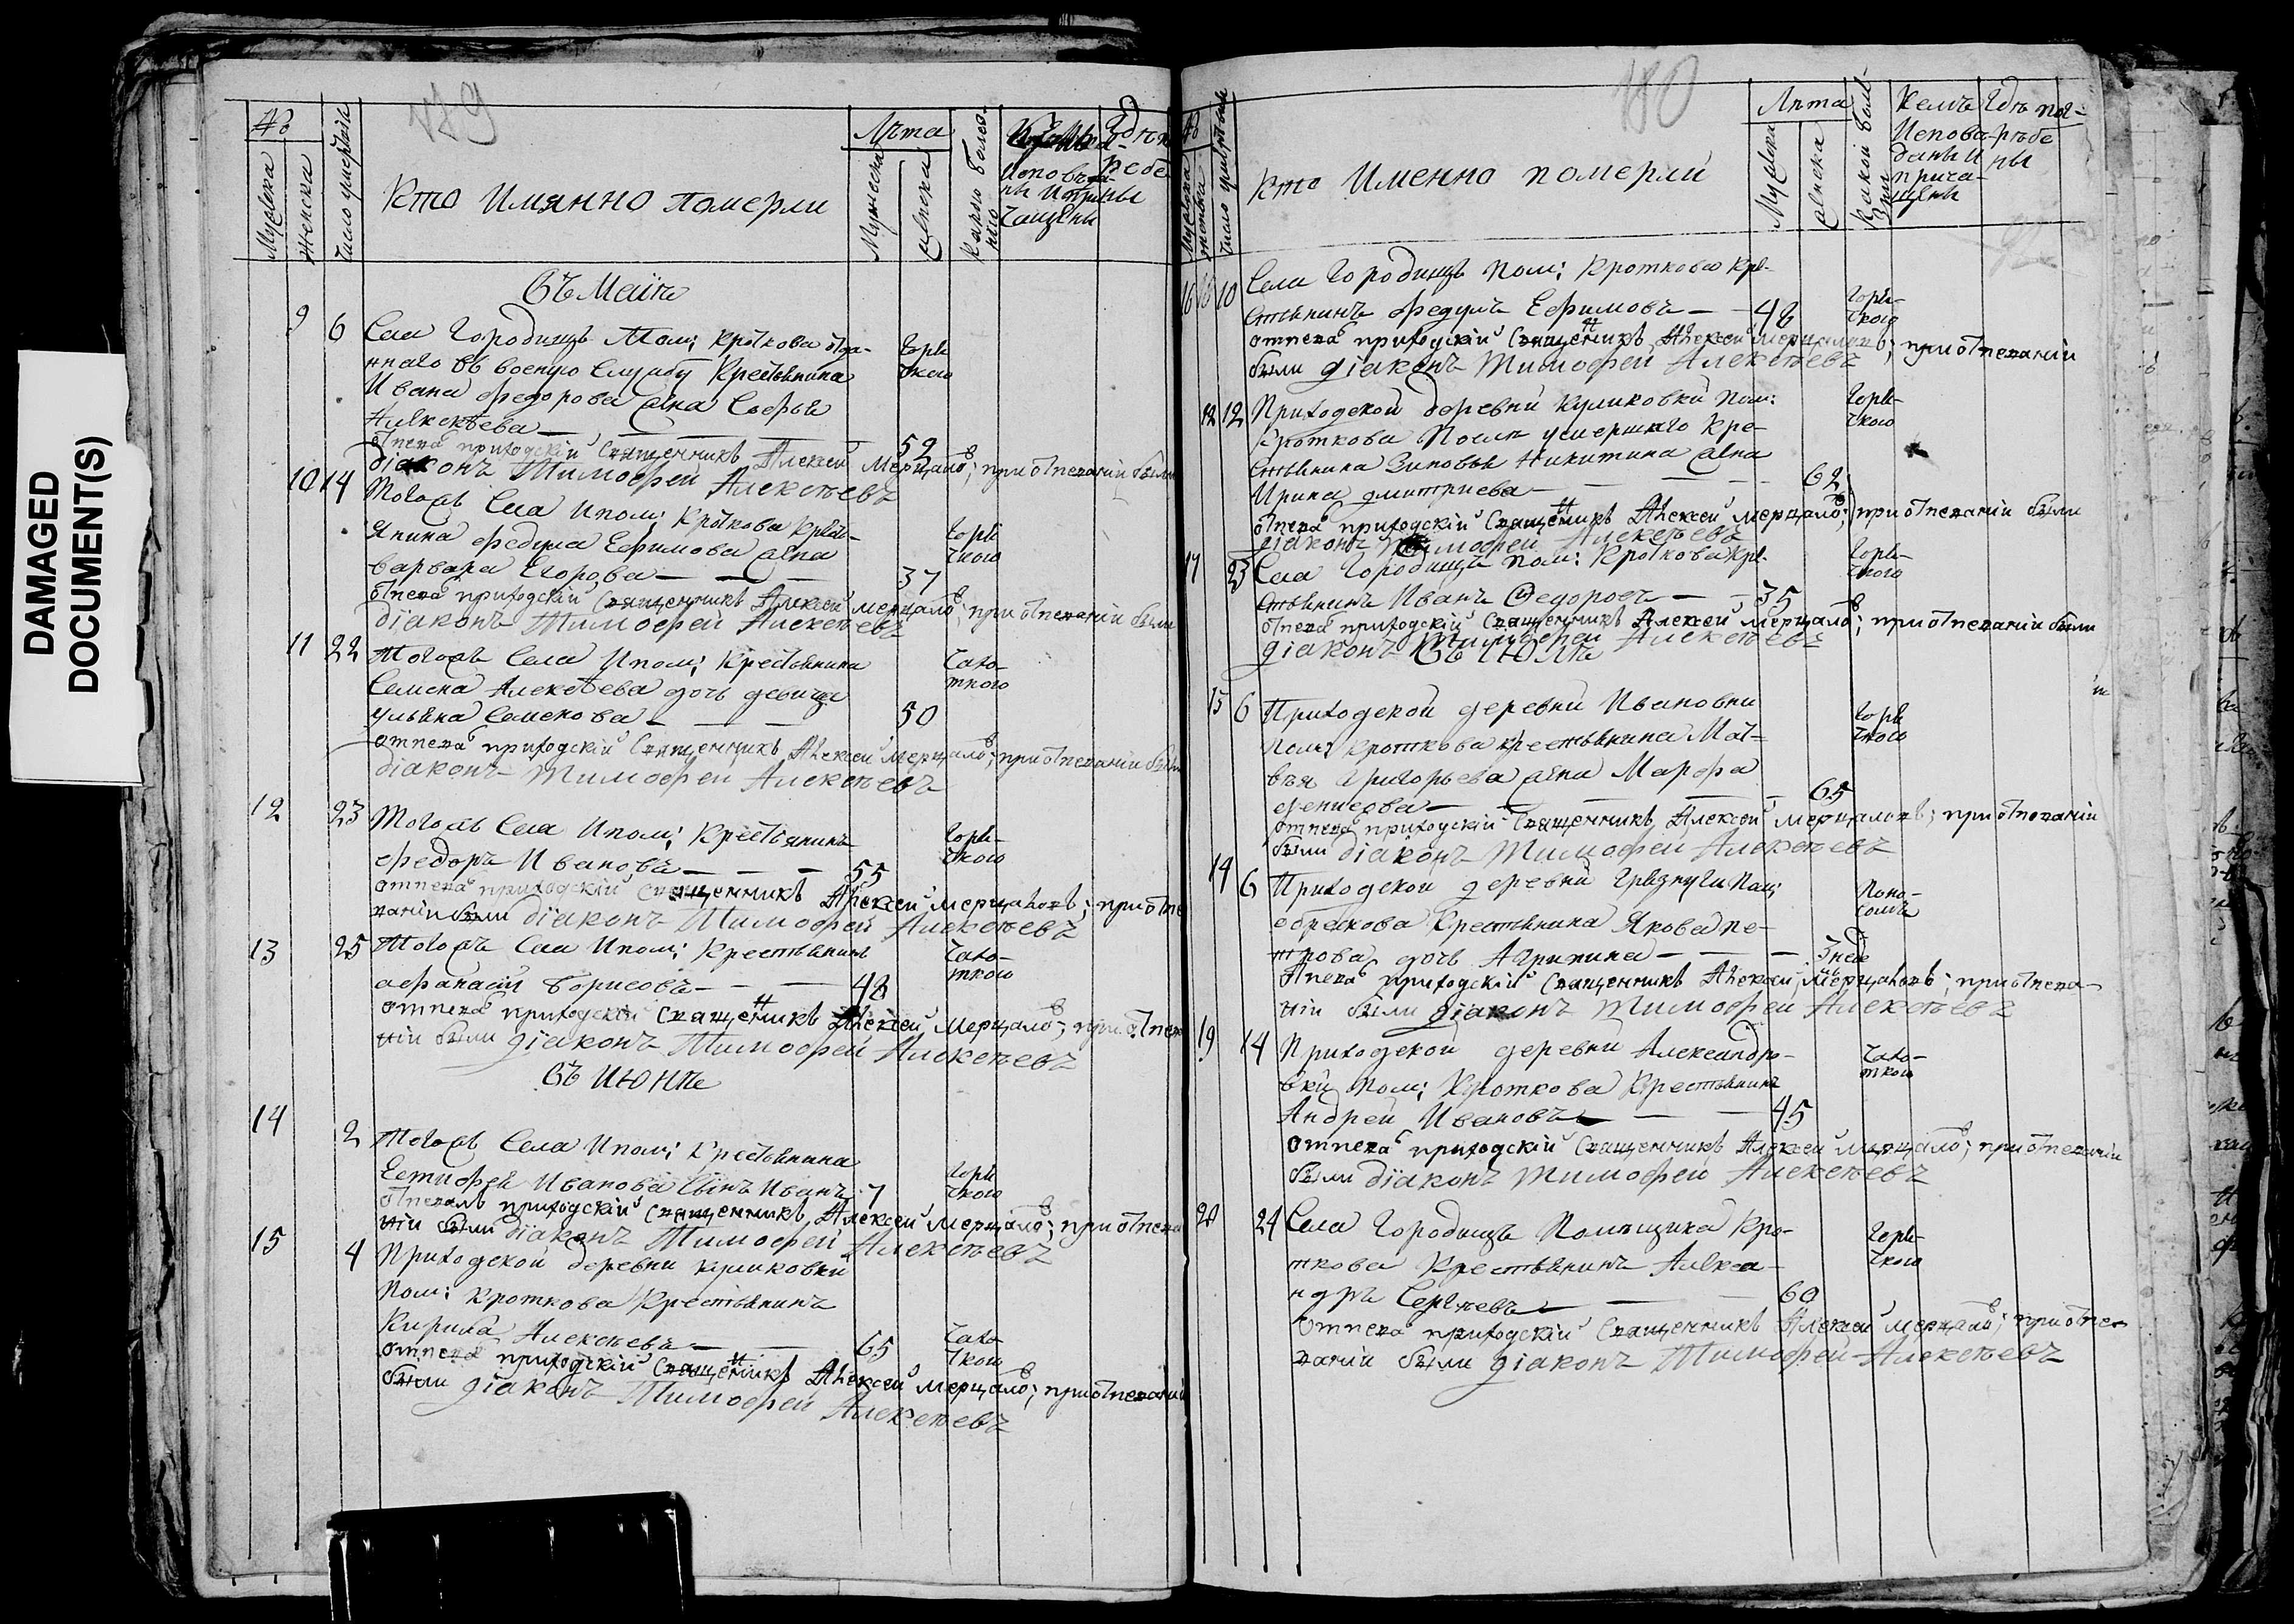 DAMAGED
DOCUMENT(S)
179
№
Мужеска
Женска
Число умерших
Кто Имянно Померли
Лѣта
Мужеска
Женска
Какою Болез-
нію
Кѣмъ
Исповѣда-
ны И при-
чащены
Гдѣ по-
гребе-
ны
Въ Маiѣ
9 6 Села Городищъ Пом: Кроткова отда-
ннаго въ военую Службу Крестьянина
Ивана Федорова жена Софья
Алексѣева — — — 52
Горя-
чкою
отпевалъ приходскій Священникъ Алексей Мерцаловъ; при отпеваніи были
діаконъ Тимофей Алексѣевъ
10 14 Тогожъ Села И пом: Кроткова Кресть-
янина Федула Ефимова жена
Варвара Егорова — — — 37
Горя-
чкою
отпевалъ приходскій Священникъ Алексей Мерцаловъ; при отпеваніи были
діаконъ Тимофей Алексѣевъ
11 22 Тогожъ Села И пом: Крестьянина
Семена Алексѣева дочь девица
Ульяна Семенова — — — 50
Чахо-
ткою
отпевалъ приходскій Священникъ Алексей Мерцаловъ; при отпеваніи были
діаконъ Тимофей Алексѣевъ
12 23 Тогожъ Села И пом: Крестьянинъ
Федоръ Ивановъ — — — 55
Горя-
чкою
отпевалъ приходскій Священникъ Алексей Мерцаловъ; при отпе
ваніи были діаконъ Тимофей Алексѣевъ
13 25 Тогожъ Села И пом: Крестьянинъ
Афанасий Борисовъ — — — 48
Чахо-
ткою
отпевалъ приходскій Священникъ Алексей Мерцаловъ; при отпева
ніи были діаконъ Тимофей Алексѣевъ
Въ Июнѣ
14 2 Тогожъ Села И пом: Крестьянина
Естифея Иванова Сынъ Иванъ 7
Горя-
чкою
отпевалъ приходскій Священникъ Алексей Мерцаловъ; при отпева
ніи были діаконъ Тимофей Алексѣевъ
15 4 Приходской деревни Куликовки
Пом: Кроткова Крестьянинъ
Кирила Алексѣевъ — — 65
Чахо-
ткою
отпевалъ приходскій Священникъ Алексей Мерцаловъ; при отпеваніи
были діаконъ Тимофей Алексѣевъ
180
№
Мужеска
Женска
Число умершихъ
Кто Именно померли
Лѣта
Мужеска
Женска
Какой Болѣ-
зни
Кемъ
Испова-
даны И
прича-
щены
Гдѣ пог-
ребе
ны
16 10 Села Городищъ Пом: Кроткова Кре-
стьянинъ Федулъ Ефимовъ — — 48
Горя-
чкою
отпевалъ приходскій Священникъ Алексей Мерцаловъ; при отпеваніи
были діаконъ Тимофей Алексѣевъ
12 12 Приходской деревни Куликовки Пом:
Кроткова После умершаго Кре-
стьянина Зиновья Никитина жена
Ирина Дмитриева — — — 62
Горя-
чкою
отпевалъ приходскій Священникъ Алексей Мерцаловъ; при отпеваніи были
діаконъ Тимофей Алексѣевъ
17 23 Села Городищъ Пом: Кроткова Кре-
стьянинъ Иванъ Федоровъ — — 35
Горя-
чкою
отпевалъ приходскій Священникъ Алексей Мерцаловъ; при отпеваніи были
діаконъ Тимофей Алексѣевъ
Въ Июлѣ
13 6 Приходской деревни Ивановки
Пом: Кроткова Крестьянина Мат-
вѣя Григорьева жена Марфа
Денисова — — — 65
Горя-
чкою
отпевалъ приходскій Священникъ Алексей Мерцаловъ; при отпеваніи
были діаконъ Тимофей Алексѣевъ
14 6 Приходской деревни Грязнухи Пом:
Обрескова Крестьянина Якова Пе-
трова дочь Агрипина — — — 3 неде
Поно-
сомъ
отпевалъ приходскій Священникъ Алексей Мерцаловъ; при отпева-
ніи были діаконъ Тимофей Алексѣевъ
19 14 Приходской деревни Александро-
вки Пом: Кроткова Крестьянинъ
Андрей Ивановъ — — — 45
Чахо-
ткою
отпевалъ приходскій Священникъ Алексей Мерцаловъ; при отпеваніи
были діаконъ Тимофей Алексѣевъ
20 24 Села Городищъ Помѣщика Кро-
ткова Крестьянинъ Алекса-
ндръ Сергѣевъ — — — 60
Горя-
чкою
Отпевалъ приходскій Священникъ Алексей Мерцаловъ; при отпе-
ваніи были діаконъ Тимофей Алексѣевъ